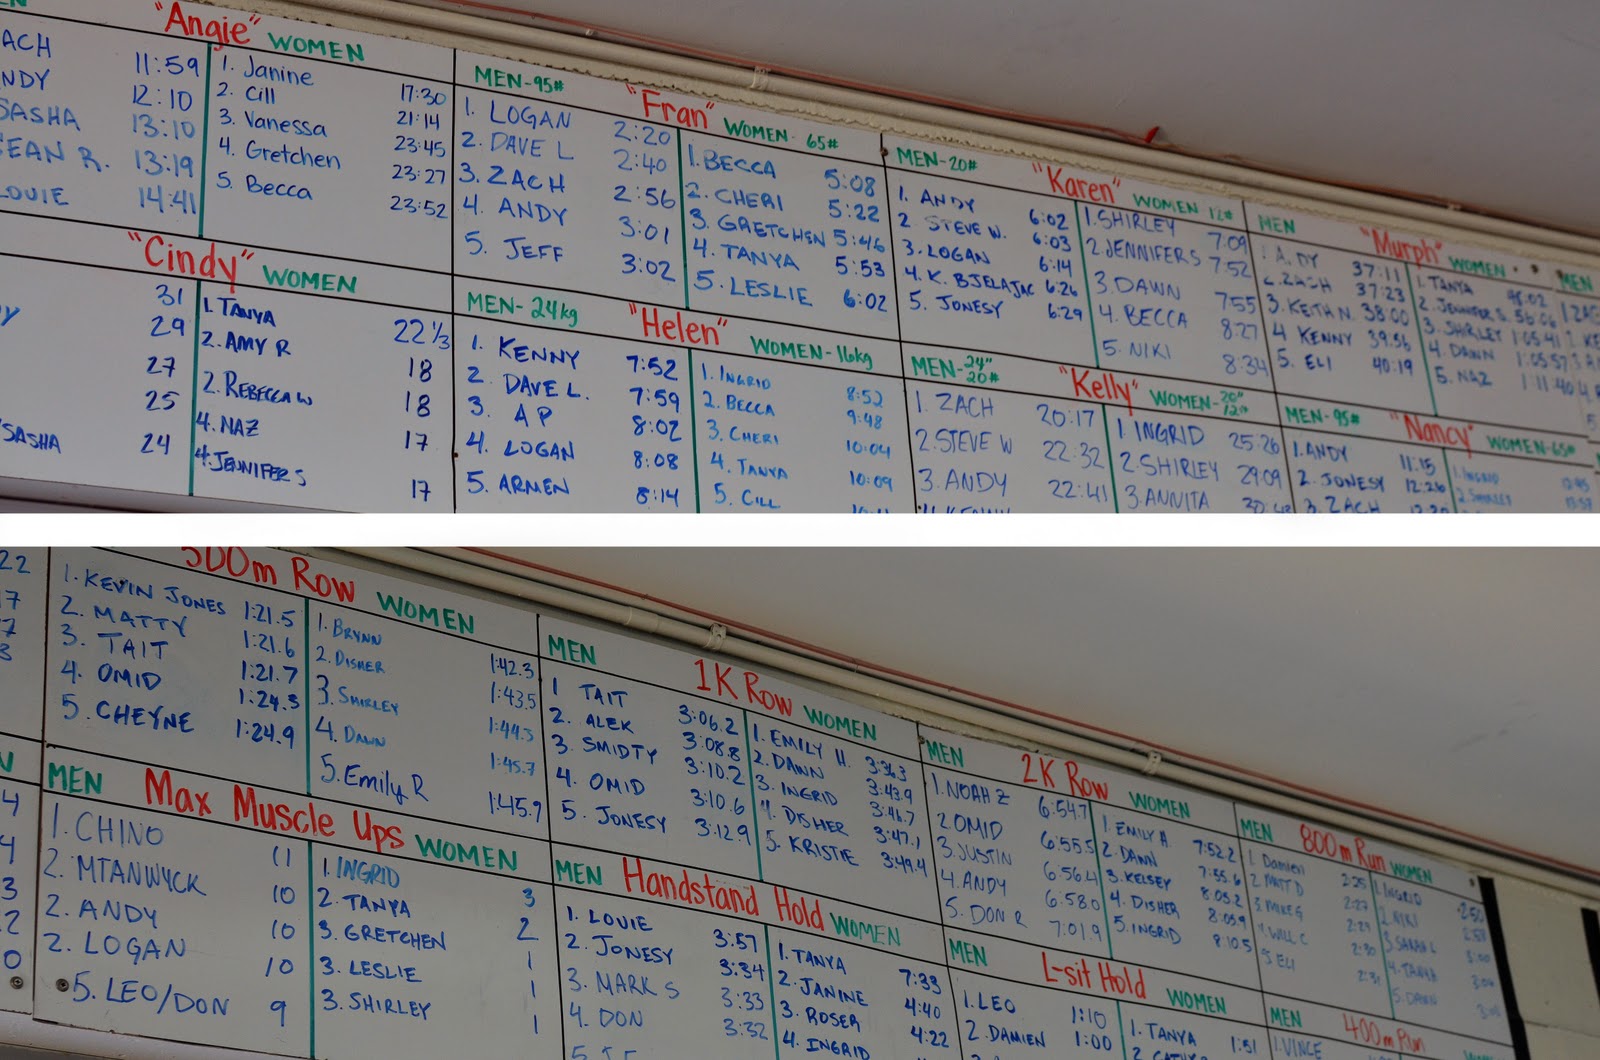 "Angie" WOMEN
ACH 11:59
NDY 12:10
SASHA 13:10
EAN R. 13:19
LOUIE 14:41
1. Janine 17:30
2. Cill 21:14
3. Vanessa 23:45
4. Gretchen 23:27
5. Becca 23:52
MEN-95# "Fran" WOMEN - 65#
1. LOGAN 2:20
2. DAVE L 2:40
3. ZACH 2:56
4. ANDY 3:01
5. JEFF 3:02
1. BECCA 5:08
2. CHERI 5:22
3. GRETCHEN 5:46
4. TANYA 5:53
5. LESLIE 6:02
MEN-20# "Karen" WOMEN 12#
1. ANDY 6:02
2. STEVE W. 6:03
3. LOGAN 6:14
4. K. BJELAJAC 6:26
5. JONESY 6:29
1. SHIRLEY 7:09
2. JENNIFER S 7:52
3. DAWN 7:55
4. BECCA 8:27
5. NIKI 8:34
MEN "Murph" WOMEN
37:11
2. ZACH 37:23
3. KEITH N. 38:00
4 KENNY 39:56
5. ELI 40:19
1. TANYA 46:02
2. JENNIFER S. 56:06
3. SHIRLEY 1:05:41
4. DAWN 1:05:57
5. NAZ 1:11:40
MEN
"Cindy" WOMEN
31
29
27
25
SASHA 24
1. TANYA 22 1/3
2. AMY R 18
2. REBECCA W 18
4. NAZ 17
4. JENNIFER S 17
MEN-24kg "Helen" WOMEN-16kg
1. KENNY 7:52
2. DAVE L. 7:59
3. AP 8:02
4. LOGAN 8:08
5. ARMEN 8:14
1. INGRID 8:52
2. BECCA 9:48
3. CHERI 10:04
4. TANYA 10:09
5. CILL
MEN-24" 20# "Kelly" WOMEN-20" 12#
1. ZACH 20:17
2. STEVE W 22:32
3. ANDY 22:41
1 INGRID 25:26
2. SHIRLEY 29:09
3. ANNITA
MEN-95# "Nancy" WOMEN-65#
1. ANDY 11:15
2. JONESY 12:26
3. ZACH
1. INGRID
2. SHIRLEY
500m Row WOMEN
1. KEVIN JONES 1:21.5
2. MATTY 1:21.6
3. TAIT 1:21.7
4. OMID 1:24.3
5. CHEYNE 1:24.9
1. BRYNN 1:42.3
2. DISHER 1:43.5
3. SHIRLEY 1:44.3
4. DAWN 1:45.7
5. Emily R 1:45.9
MEN 1K Row WOMEN
1 TAIT 3:06.2
2. ALEK 3:08.8
3. SMIDTY 3:10.2
4. OMID 3:10.6
5. JONESY 3:12.9
1. EMILY H. 3:36.3
2. DAWN 3:43.9
3. INGRID 3:46.7
4. DISHER 3:47.1
5. KRISTIE 3:49.4
MEN 2K Row WOMEN
1. NOAH Z 6:54.7
2. OMID 6:55.5
3. JUSTIN 6:56.4
4. ANDY 6:58.0
5. DON R 7:01.9
1. EMILY H. 7:52.2
2. DAWN 7:55.6
3. KELSEY 8:05.2
4. DISHER 8:05.9
5. INGRID 8:10.5
MEN 800m Run WOMEN
1. Damien 2:25
2. MATT D 2:27
3. MIKE G 2:29
4. WILL C 2:30
5. ELI 2:31
1. INGRID 2:50
2. NIKI 2:58
3. SARAH L 3:00
4. TANYA
5. DAWN
MEN Max Muscle Ups WOMEN
1. CHINO 11
2. MTANWYCK 10
2. ANDY 10
2. LOGAN 10
5. LEO/DON 9
1. INGRID 3
2. TANYA 2
3. GRETCHEN 1
3. LESLIE 1
3. SHIRLEY 1
MEN Handstand Hold WOMEN
1. LOUIE 3:57
2. JONESY 3:34
3. MARK S 3:33
4. DON 3:32
1. TANYA 7:33
2. JANINE 4:40
3. ROSER 4:22
4. INGRID
MEN L-sit Hold WOMEN
1. LEO 1:10
2. DAMIEN 1:00
1. TANYA 1:51
MEN 400m Run
1. VINCE